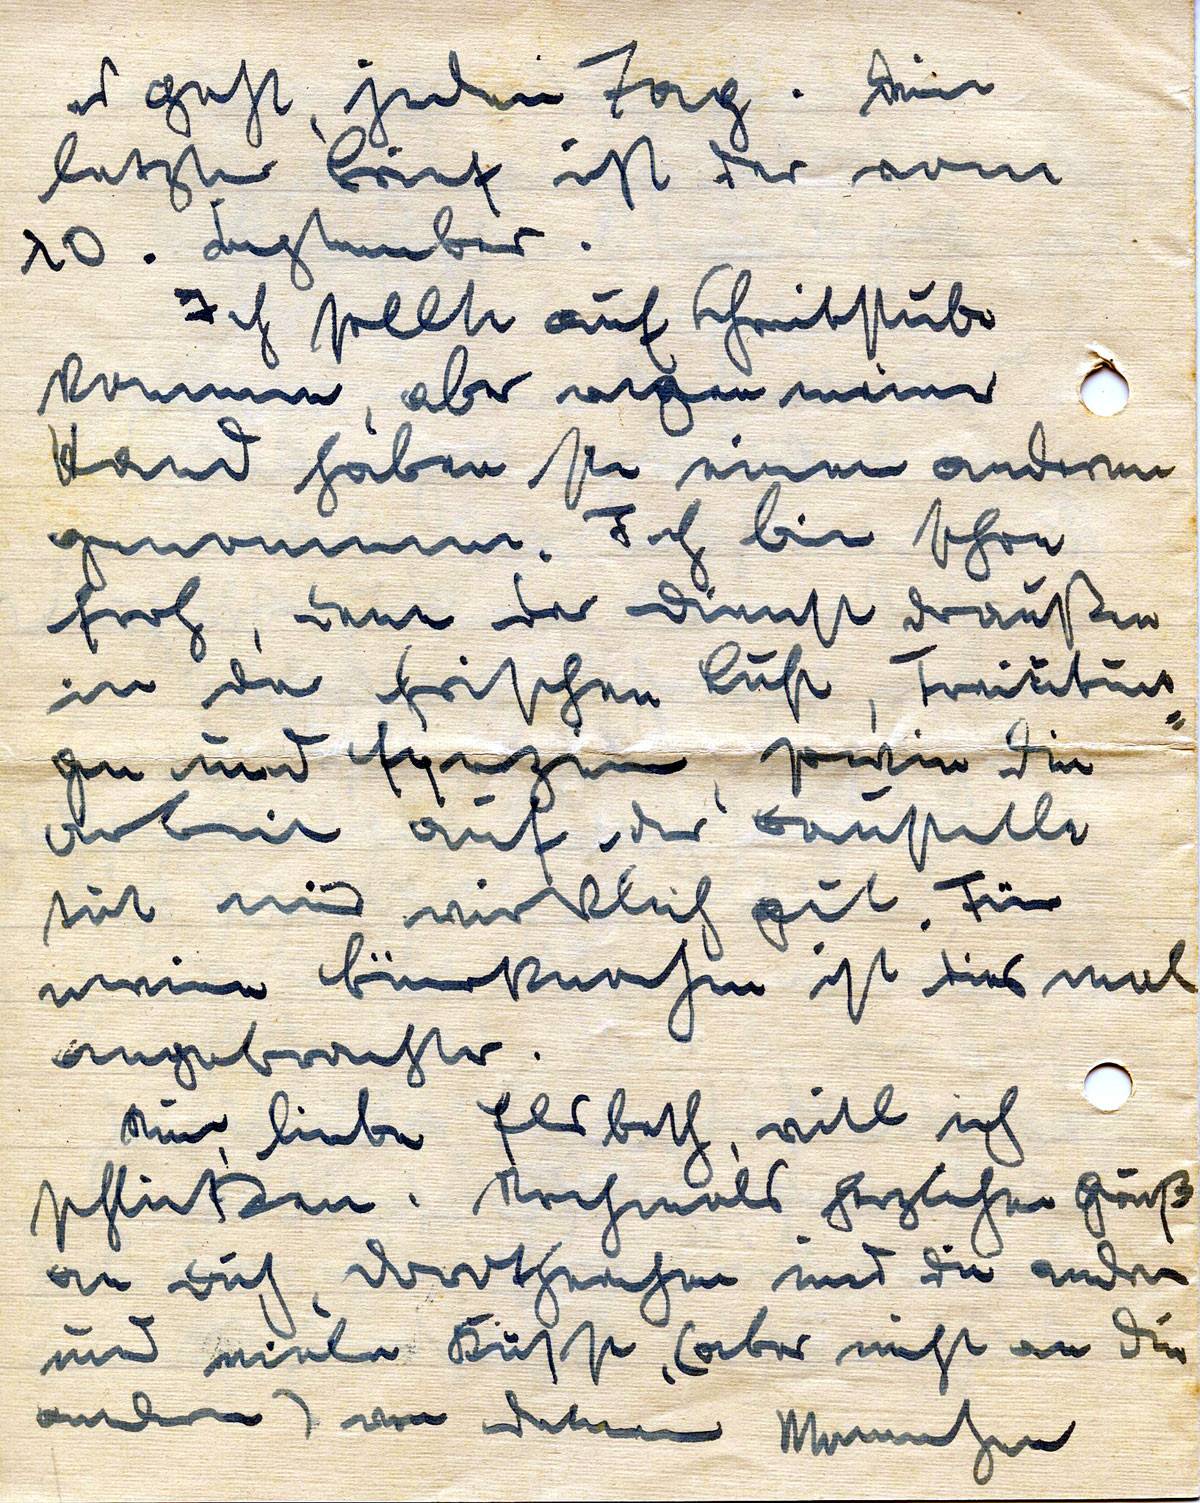 es geht, jeden Tag. Dein
letzter Brief ist der vom
20. September.
Ich sollte auf Schreibstube
kommen, aber wegen meiner
Hand haben sie einen anderen
genommen. Ich bin schon
froh, denn der Dienst draußen
in der frischen Luft,
gen und Exerzieren, sowie die
Arbeit auf der Baustelle
tut mir wirklich gut. Für
meine Büroknochen ist dies mal
angebrachter.
Nun, liebe Elsbeth, will ich
schließen. Nochmals herzlichen Gruß
an Dich, Dorotheachen und die andern
und viele Küsse (aber nicht an die
andern) von deinem Mannchen